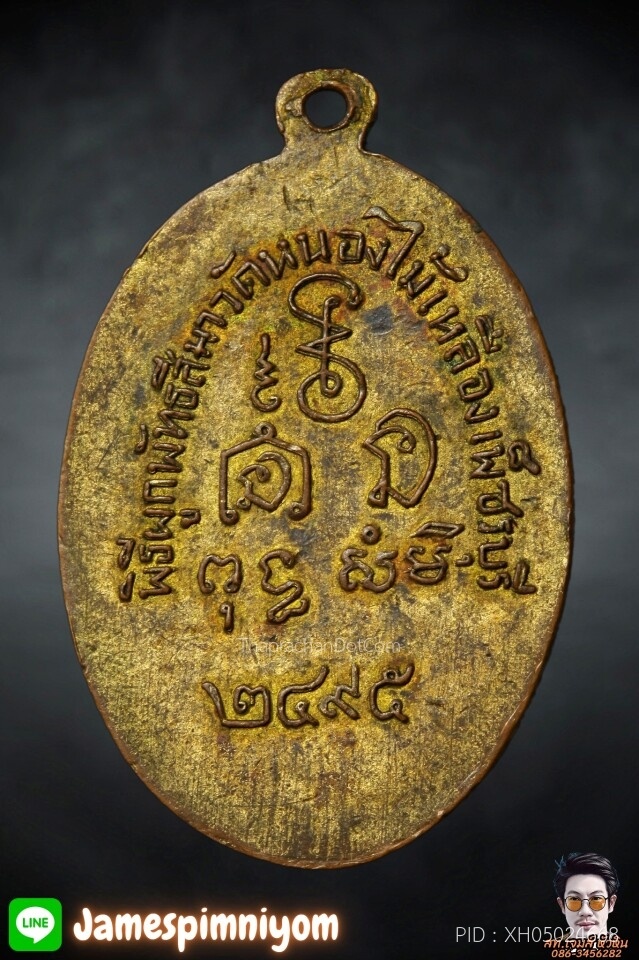 พิธีผูกพัทธสีมาวัดหนองไม้เหลืองเพ็ชรบุรี
๒๔๙๕
ThaprachanDotCom
LINE
Jamespimniyom
PID : XH05024668
สท.เจมส์ หัวหิน
086-3456282